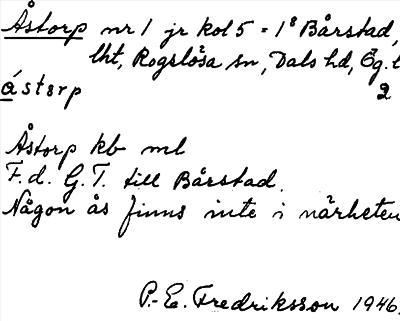 Åstorp nr 1 jr kol 5 = 1⁸ Bårstad,
lht, Rogslösa sn, Dals hd, Ög. l
åstɵrp 2
Åstorp kb ml
F.d. G.T. till Bårstad.
Någon ås finns inte i närheten
P.-E. Fredriksson 1946.